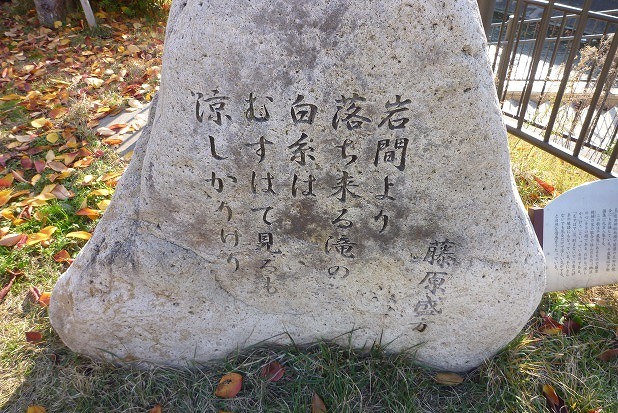 岩間より
落ち来る滝の
白糸は
むすばで見るも
涼しかりけり
藤原盛方